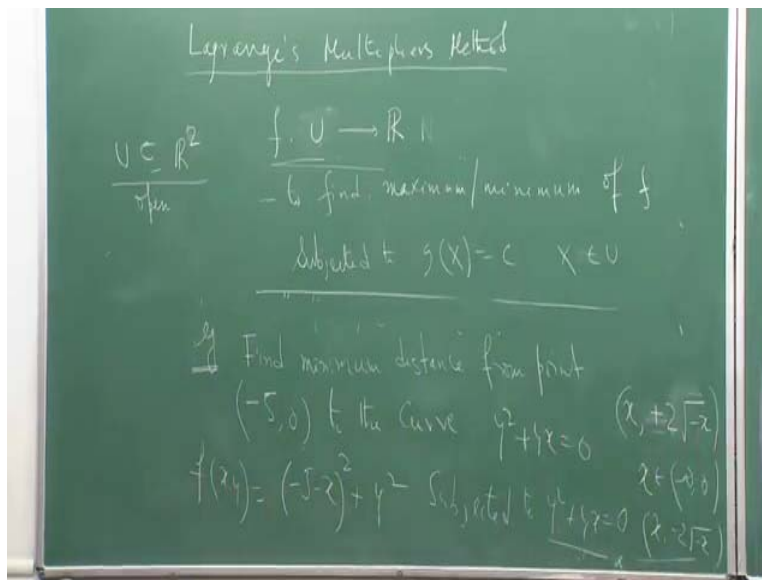 Lagrange's Multipliers Method
f: U → ℝ
U ⊆ ℝ²
open
- to find maximum/minimum of f
Subjected to g(X) = C X ∈ U
eg Find minimum distance from point
(-5, 0) to the curve y²+4x=0 (x, +2√-x)
x ∈ (-∞, 0)
f(x,y) = (-5-x)² + y² Subjected to y²+4x=0 (x, -2√-x)